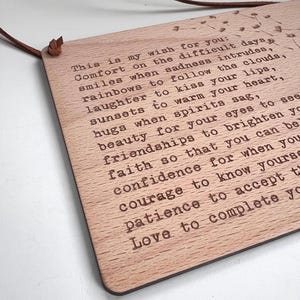 This is my wish for you:
Comfort on the difficult days,
smiles when sadness intrudes,
rainbows to follow the clouds,
laughter to kiss your lips,
sunsets to warm your heart,
hugs when spirits sag,
beauty for your eyes to see
friendships to brighten
faith so that you can
confidence for when
courage to know
patience to accept
Love to complete